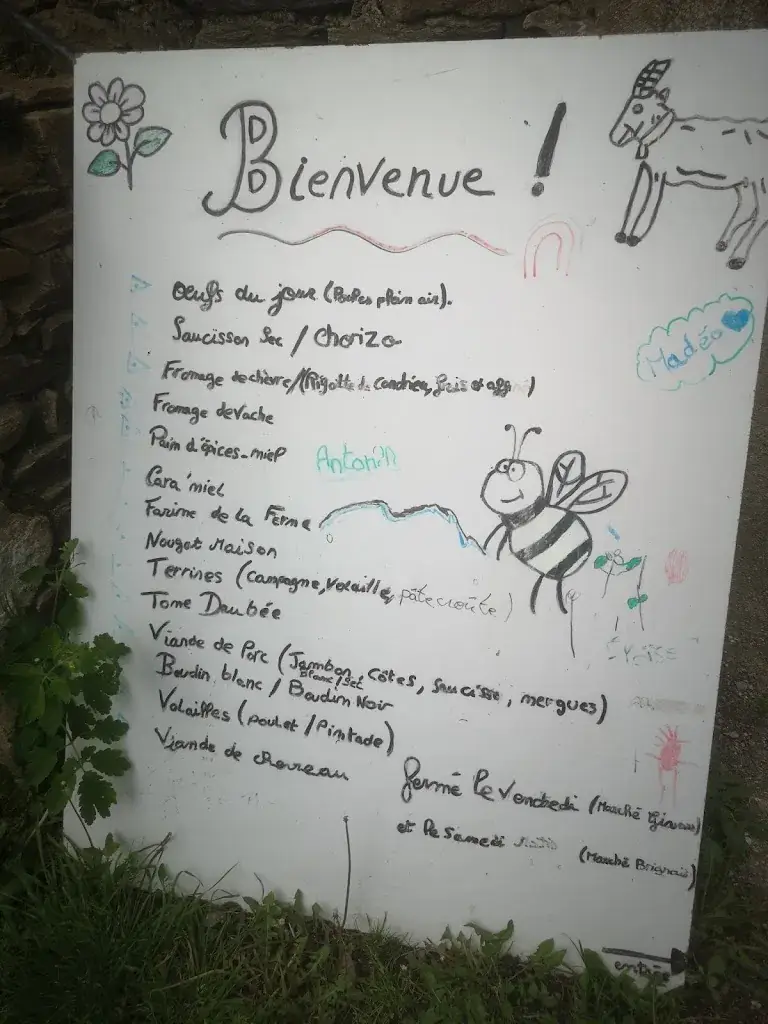 Bienvenue !
Oeufs du jour (Poules plein air).
Saucisson Sec / Chorizo
Madéo
Fromage de chèvre/(Rigotte de Condrieu, frais et affiné)
Fromage de Vache
Pain d'épices-miel
Antonin
Cara'miel
Farine de la Ferme
Nougat Maison
Terrines (Campagne, Volaille, pâte croûte)
Tome Daubée
Viande de Porc (Jambon, côtes, saucisse, mergues)
Blanc/Sec
Boudin blanc / Boudin Noir
Volailles (poulet / Pintade)
Viande de chevreau
fermé le Vendredi (Marché Givors)
et le Samedi Matin (Marché Brignais)
entrée